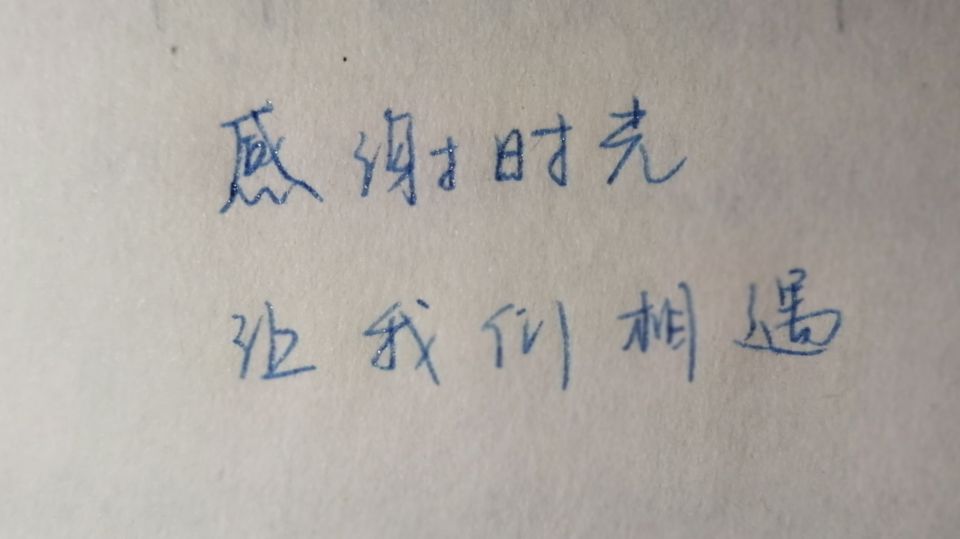 感谢时光
让我们相遇